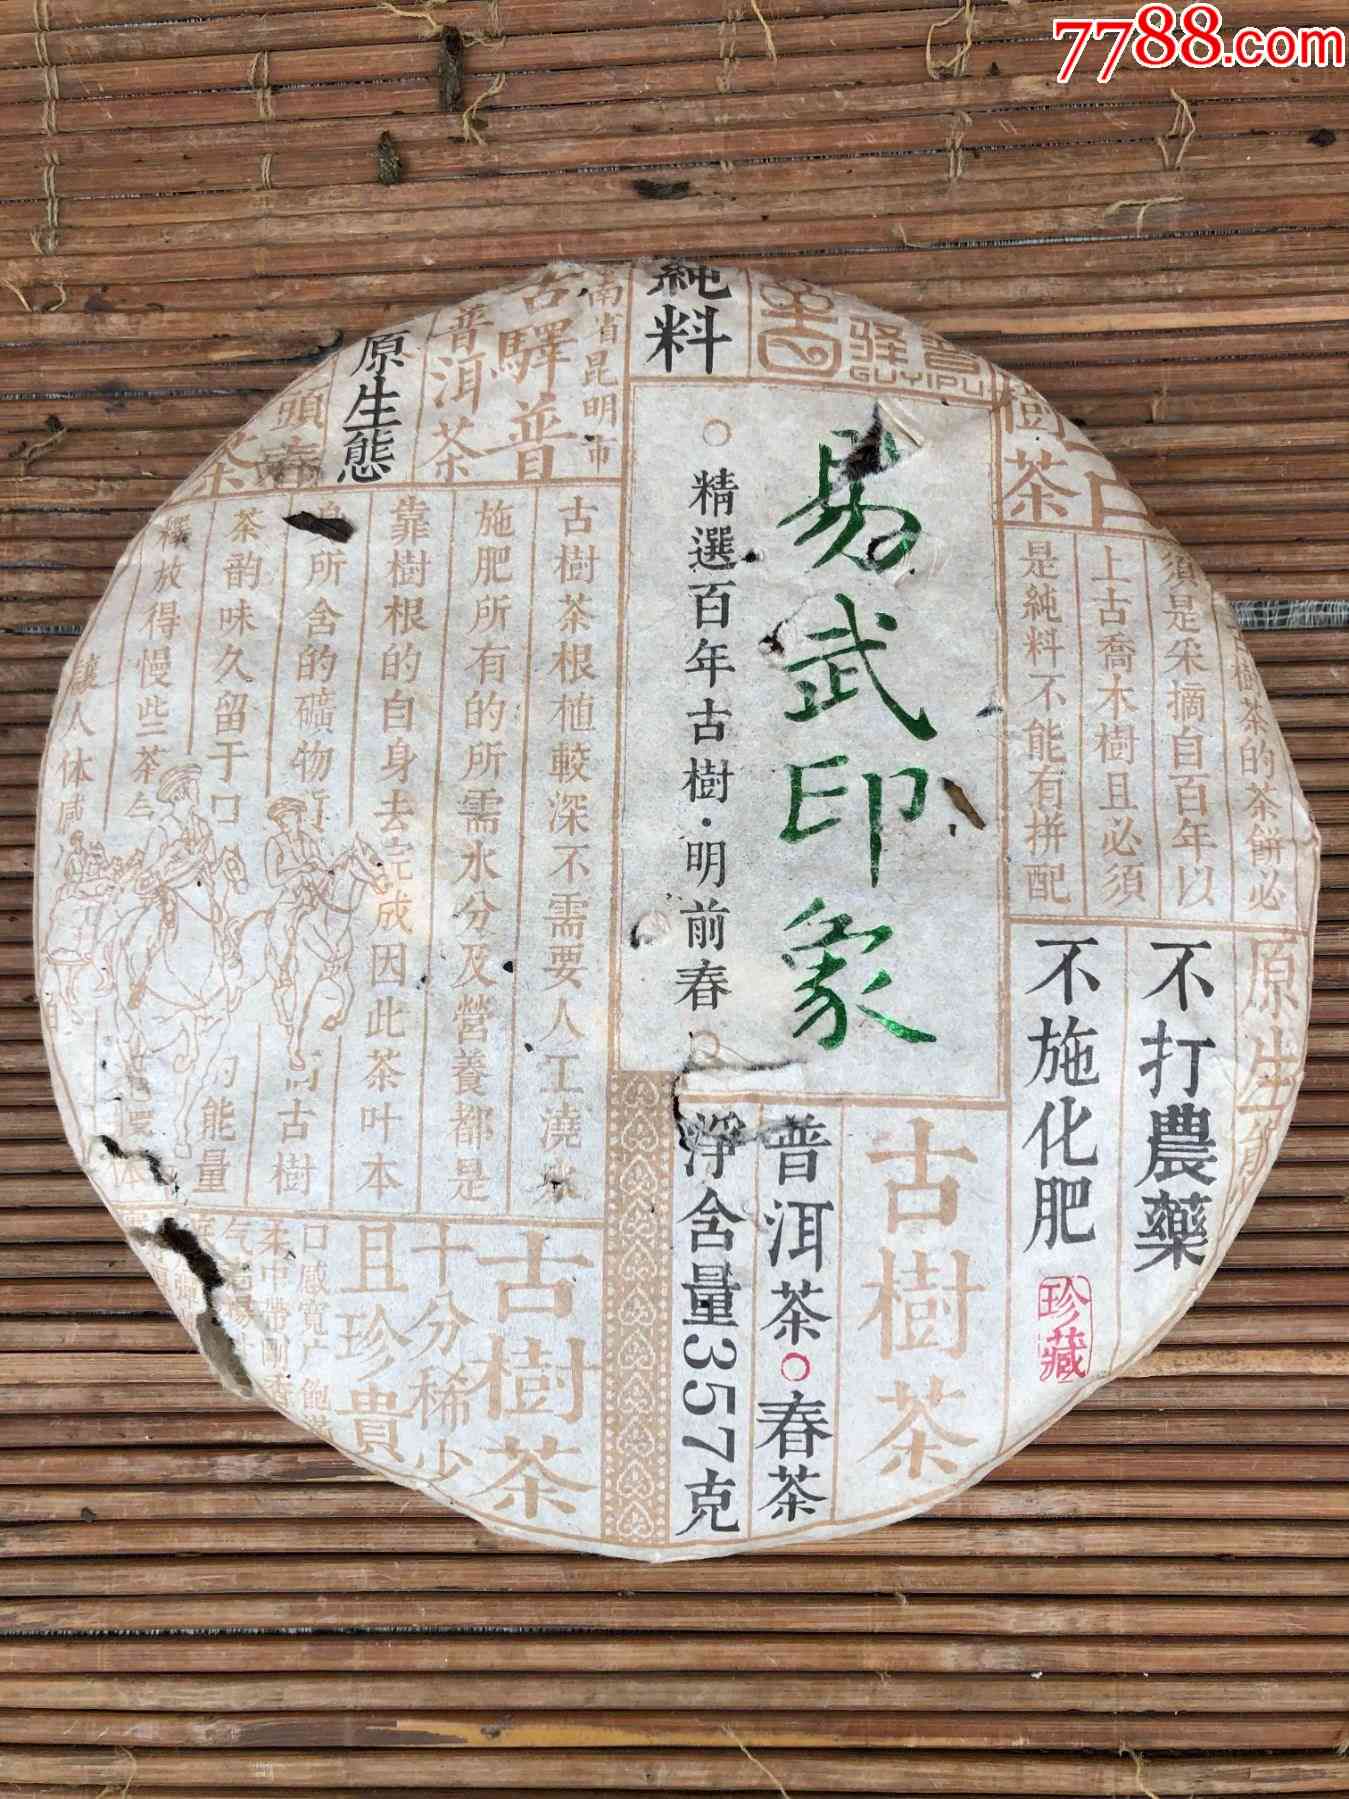 7788.com
純料
驿普
GUYIPU
南省昆明市
古驛普
普洱茶
原生態
頭春
茶
樹茶
易武印象
○精選百年古樹·明前春○
樹茶的茶餅必
須是采摘自百年以
上古喬木樹且必須
是純料不能有拼配
古樹茶根植較深不需要人工澆水
施肥所有的所需水分及營養都是
靠樹根的自身去完成因此茶叶本
所含的礦物
高古樹
茶韵味久留于口
的能量
釋放得慢些茶
讓人体感
原生態
不打農藥
不施化肥
珍藏
古樹茶
普洱茶○春茶
淨含量357克
古樹茶
十分稀少
且珍貴
口感寬广飽滿
柔中帶剛香
气